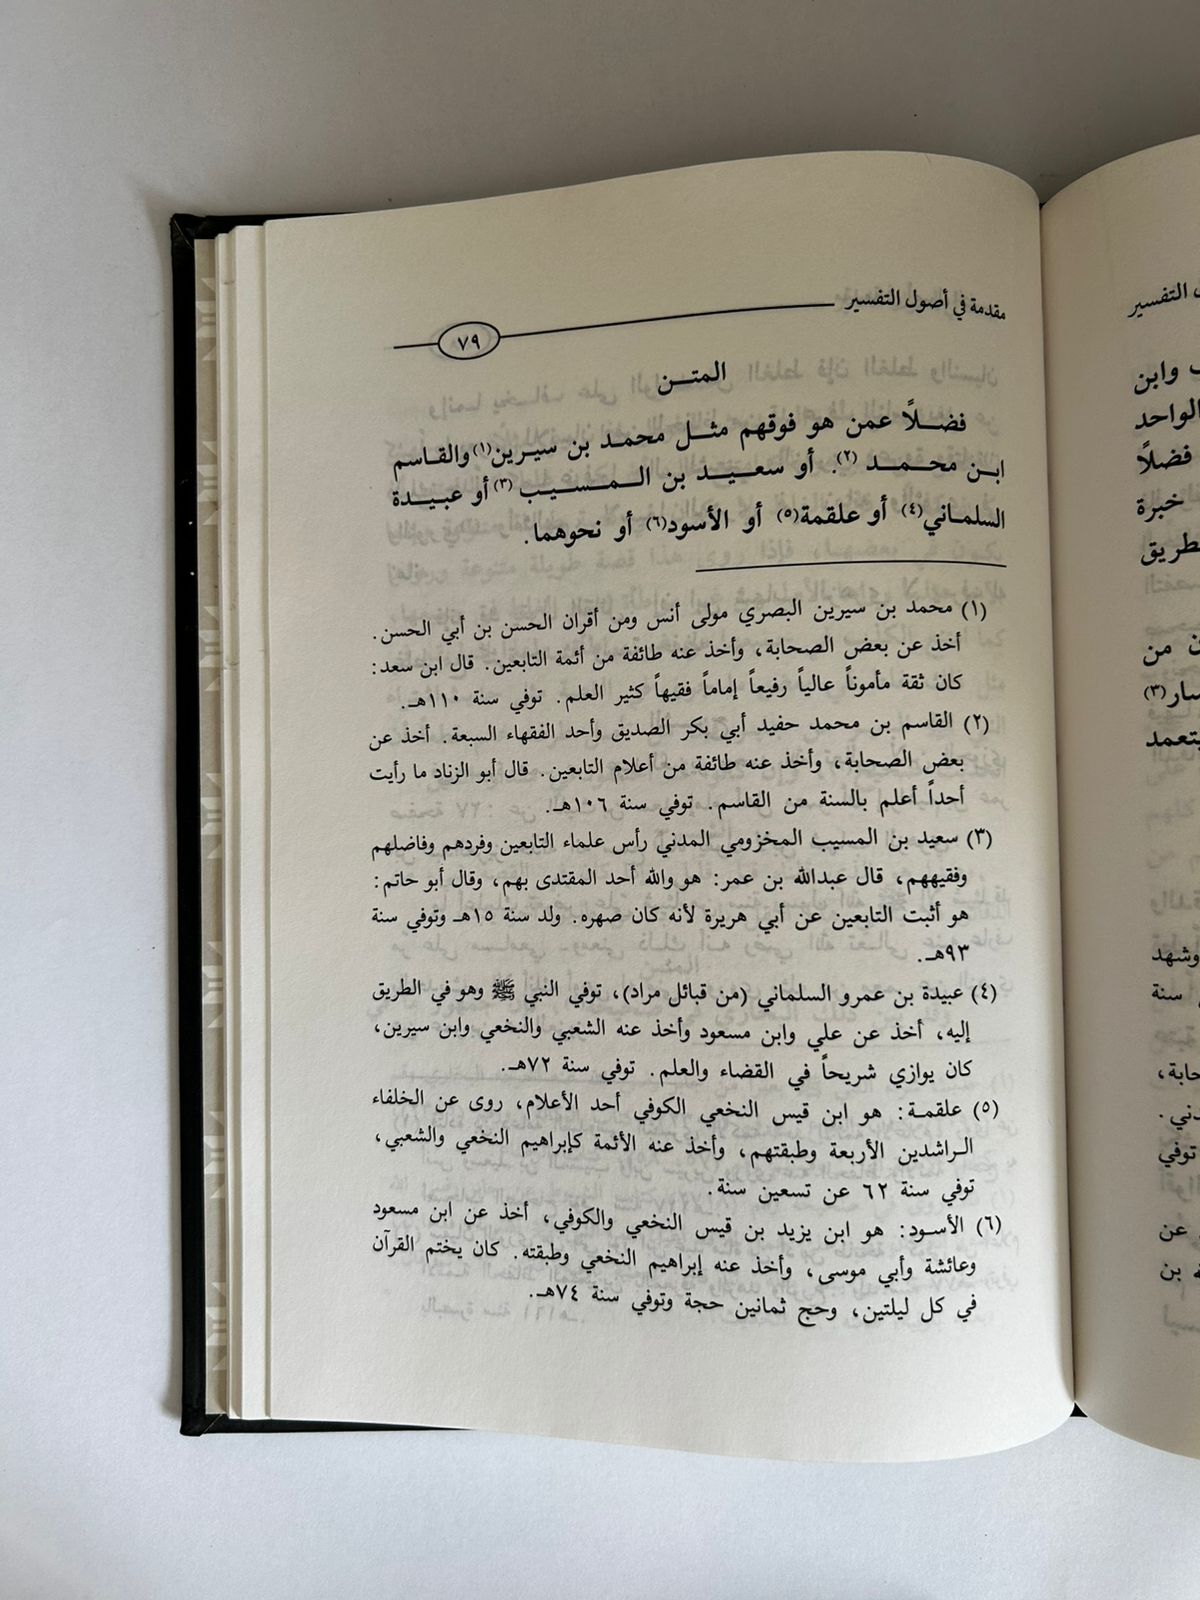 مقدمة في أصول التفسير
٧٩
المتــن
فضــلاً عمن هو فوقهم مثــل محمد بن سيرين(١) والقاسم
ابن محمــد (٢). أو سعيــد بن المسيب (٣) أو عبيدة
السلماني(٤) أو علقمة(٥) أو الأسود(٦) أو نحوهما.
(١) محمد بن سيرين البصري مولى أنس ومن أقران الحسن بن أبي الحسن.
أخذ عن بعض الصحابة، وأخذ عنه طائفة من أئمة التابعين. قال ابن سعد:
كان ثقة مأموناً عالياً رفيعاً إماماً فقيهاً كثير العلم. توفي سنة ١١٠هـ.
(٢) القاسم بن محمد حفيد أبي بكر الصديق وأحد الفقهاء السبعة. أخذ عن
بعض الصحابة، وأخذ عنه طائفة من أعلام التابعين. قال أبو الزناد ما رأيت
أحداً أعلم بالسنة من القاسم. توفي سنة ١٠٦هـ.
(٣) سعيد بن المسيب المخزومي المدني رأس علماء التابعين وفردهم وفاضلهم
وفقيههم، قال عبدالله بن عمر: هو والله أحد المقتدى بهم، وقال أبو حاتم:
هو أثبت التابعين عن أبي هريرة لأنه كان صهره. ولد سنة ١٥هـ وتوفي سنة
٩٣هـ.
(٤) عبيدة بن عمرو السلماني (من قبائل مراد)، توفي النبي ﷺ وهو في الطريق
إليه، أخذ عن علي وابن مسعود وأخذ عنه الشعبي والنخعي وابن سيرين،
كان يوازي شريحاً في القضاء والعلم. توفي سنة ٧٢هـ.
(٥) علقمة: هو ابن قيس النخعي الكوفي أحد الأعلام، روى عن الخلفاء
الراشدين الأربعة وطبقتهم، وأخذ عنه الأئمة كإبراهيم النخعي والشعبي،
توفي سنة ٦٢ عن تسعين سنة.
(٦) الأسود: هو ابن يزيد بن قيس النخعي والكوفي، أخذ عن ابن مسعود
وعائشة وأبي موسى، وأخذ عنه إبراهيم النخعي وطبقته. كان يختم القرآن
في كل ليلتين، وحج ثمانين حجة وتوفي سنة ٧٤هـ.
التفسير
وابن
الواحد
فضلاً
خبرة
من
(٣)
وشهد
سنة
توفي
عن
بن